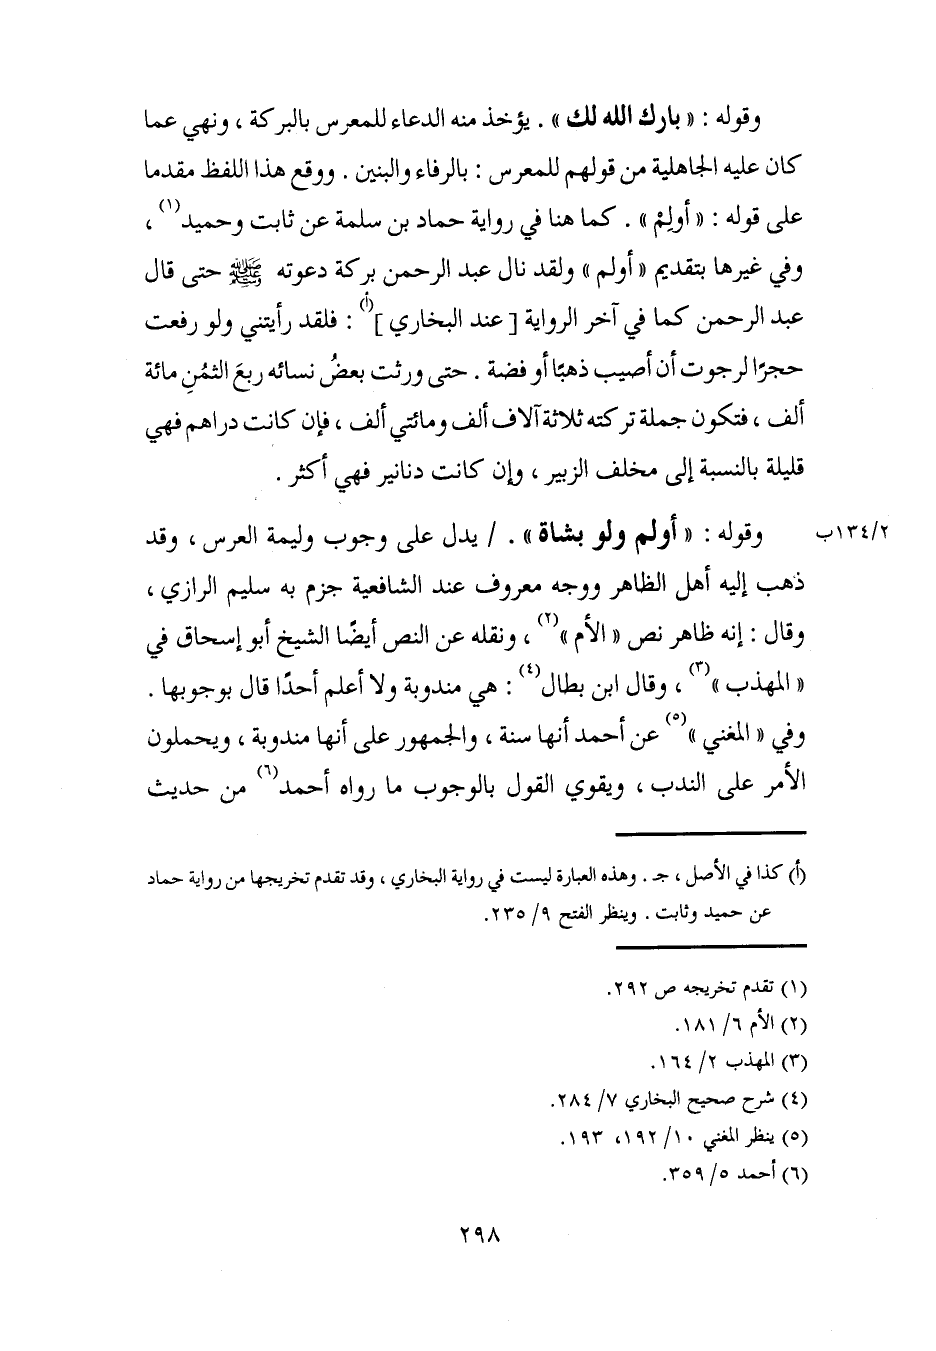 وقوله : « بارك الله لك » . يؤخذ منه الدعاء للمعرس بالبركة ، ونهي عما
كان عليه الجاهلية من قولهم للمعرس : بالرفاء والبنين . ووقع هذا اللفظ مقدما
على قوله : « أولِمْ » . كما هنا في رواية حماد بن سلمة عن ثابت وحميد(١) ،
وفي غيرها بتقديم « أولم » ولقد نال عبد الرحمن بركة دعوته ﷺ حتى قال
عبد الرحمن كما في آخر الرواية [ عند البخاري ](أ) : فلقد رأيتني ولو رفعت
حجرًا لرجوت أن أصيب ذهبًا أو فضة . حتى ورثت بعضُ نسائه ربعَ الثمُنِ مائة
ألف ، فتكون جملة تركته ثلاثة آلاف ألف ومائتي ألف ، فإن كانت دراهم فهي
قليلة بالنسبة إلى مخلف الزبير ، وإن كانت دنانير فهي أكثر .
وقوله : « أولم ولو بشاة » . / يدل على وجوب وليمة العرس ، وقد
١٣٤/٢ب
ذهب إليه أهل الظاهر ووجه معروف عند الشافعية جزم به سليم الرازي ،
وقال : إنه ظاهر نص « الأم »(٢) ، ونقله عن النص أيضًا الشيخ أبو إسحاق في
« المهذب »(٣) ، وقال ابن بطال(٤) : هي مندوبة ولا أعلم أحدًا قال بوجوبها .
وفي « المغني »(٥) عن أحمد أنها سنة ، والجمهور على أنها مندوبة ، ويحملون
الأمر على الندب ، ويقوي القول بالوجوب ما رواه أحمد(٦) من حديث
(أ) كذا في الأصل ، جـ . وهذه العبارة ليست في رواية البخاري ، وقد تقدم تخريجها من رواية حماد
عن حميد وثابت . وينظر الفتح ٩/ ٢٣٥.
(١) تقدم تخريجه ص ٢٩٢.
(٢) الأم ٦/ ١٨١.
(٣) المهذب ٢/ ١٦٤.
(٤) شرح صحيح البخاري ٧/ ٢٨٤.
(٥) ينظر المغني ١٠/ ١٩٢، ١٩٣.
(٦) أحمد ٥/ ٣٥٩.
٢٩٨